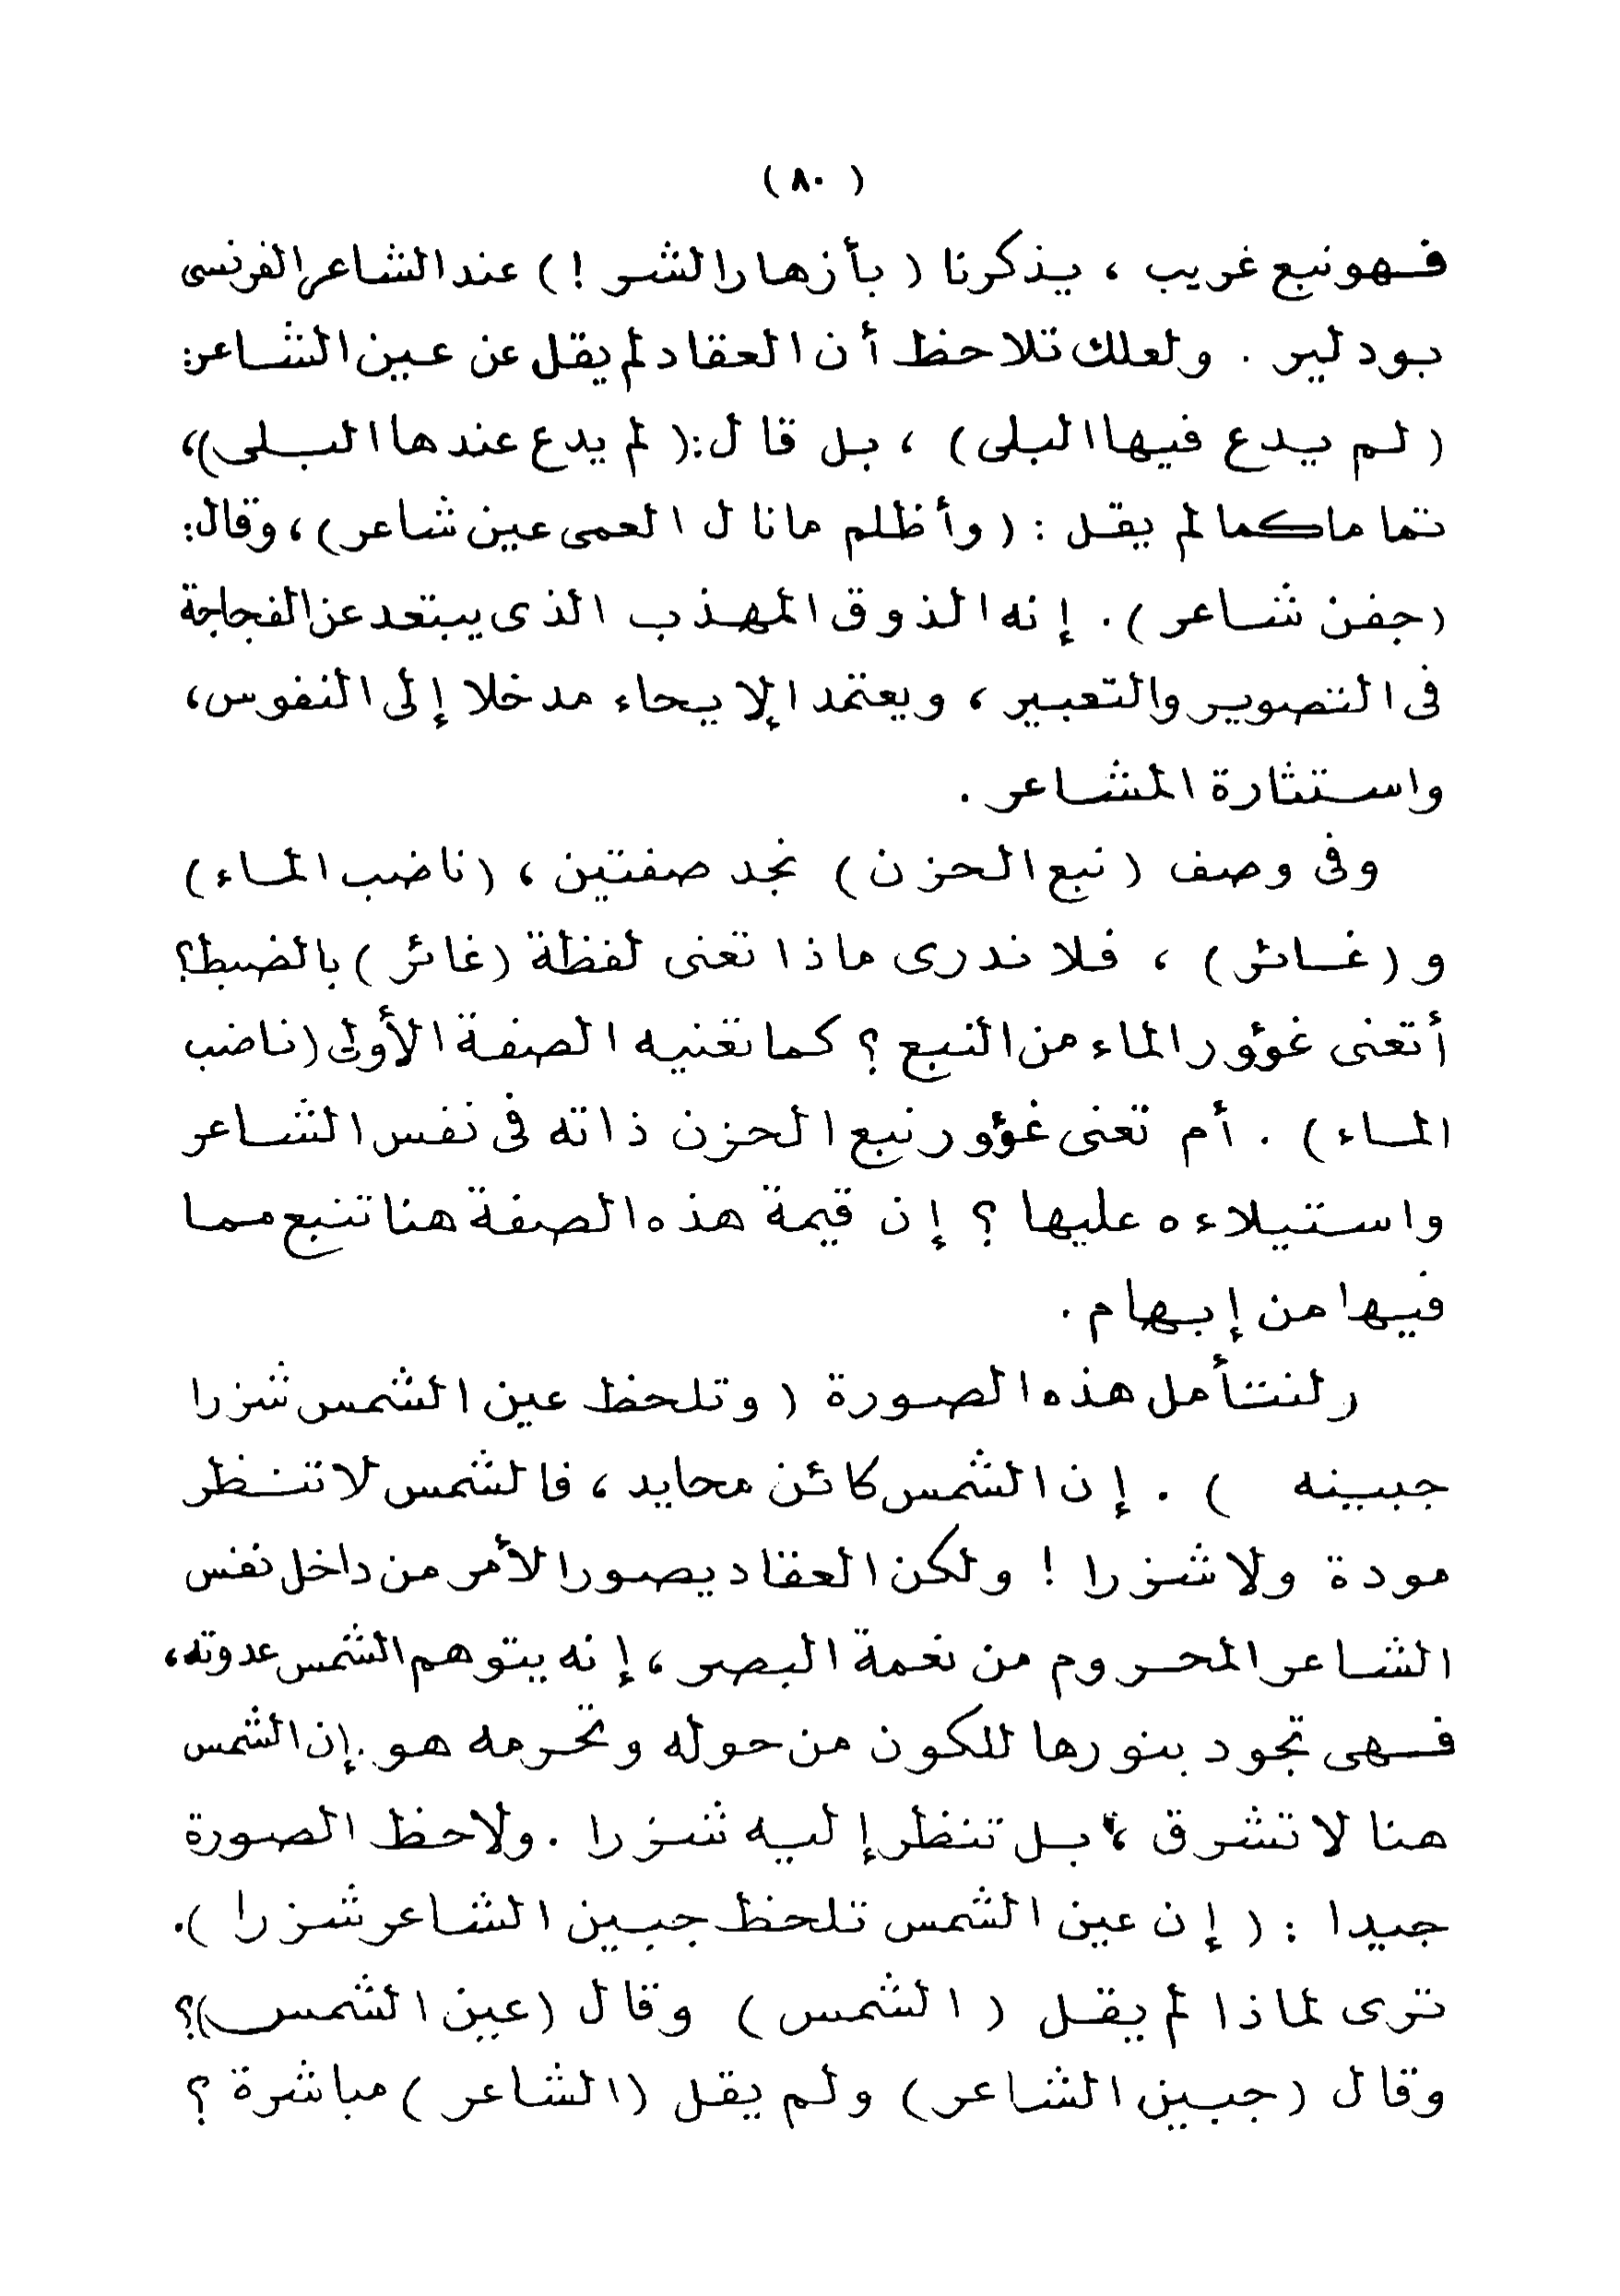 ( ٨٠ )
فهو نبع غريب ، يذكرنا ( بأزهار الشر ! ) عند الشاعر الفرنسى
بودلير . ولعلك تلاحظ أن العقاد لم يقل عن عين الشاعر:
( لم يدع فيها البلى ) ، بل قال:( لم يدع عندها البلى)،
تماما كما لم يقل : ( وأظلم ما نال العمى عين شاعر) ، وقال:
(جفن شاعر ) . إنه الذوق المهذب الذى يبتعد عن الفجاجة
فى التصوير والتعبير ، ويعتمد الإيحاء مدخلا إلى النفوس،
واستثارة المشاعر .
وفى وصف ( نبع الحزن ) نجد صفتين ، (ناضب الماء )
و (غائر ) ، فلا ندرى ماذا تعنى لفظة (غائر ) بالضبط؟
أتعنى غؤور الماء من النبع ؟ كما تعنيه الصفة الأولى (ناضب
الماء ) . أم تعنى غؤور نبع الحزن ذاته فى نفس الشاعر
واستيلاءه عليها ؟ إن قيمة هذه الصفة هنا تنبع مما
فيها من إبهام .
ولنتأمل هذه الصورة ( وتلحظ عين الشمس شزرا
جبينه ) . إن الشمس كائن محايد ، فالشمس لا تنظر
مودة ولا شزرا ! ولكن العقاد يصور الأمر من داخل نفس
الشاعر المحروم من نعمة البصر ، إنه يتوهم الشمس عدوته،
فهى تجود بنورها للكون من حوله وتحرمه هو . إن الشمس
هنا لا تشرق ، بل تنظر إليه شزرا . ولاحظ الصورة
جيدا : ( إن عين الشمس تلحظ جبين الشاعر شزرا ).
ترى لماذا لم يقل ( الشمس ) وقال (عين الشمس)؟
وقال (جبين الشاعر ) ولم يقل (الشاعر ) مباشرة ؟